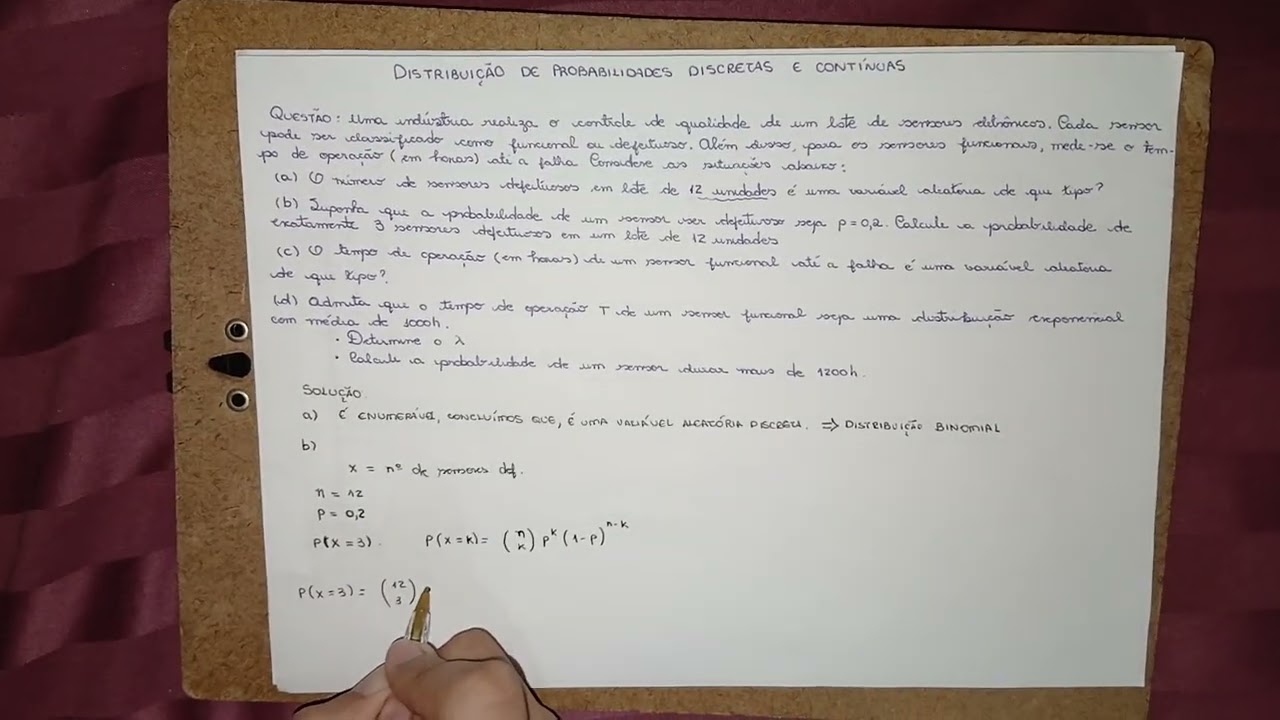 DISTRIBUIÇÃO DE PROBABILIDADES DISCRETAS E CONTÍNUAS
QUESTÃO: Uma indústria realiza o controle de qualidade de um lote de sensores eletrônicos. Cada sensor
pode ser classificado como funcional ou defeituoso. Além disso, para os sensores funcionais, mede-se o tem-
po de operação (em horas) até a falha. Considere as situações abaixo:
(a) O número de sensores defeituosos em lote de 12 unidades é uma variável aleatória de que tipo?
(b) Suponha que a probabilidade de um sensor ser defeituoso seja p=0,2. Calcule a probabilidade de
exatamente 3 sensores defeituosos em um lote de 12 unidades
(c) O tempo de operação (em horas) de um sensor funcional até a falha é uma variável aleatória
de que tipo?
(d) Admita que o tempo de operação T de um sensor funcional seja uma distribuição exponencial
com média de 1000h.
• Determine o λ
• Calcule a probabilidade de um sensor durar mais de 1200h.
SOLUÇÃO
a) É ENUMERÁVEL, CONCLUÍMOS QUE, É UMA VARIÁVEL ALEATÓRIA DISCRETA. ⇒ DISTRIBUIÇÃO BINOMIAL
b)
x = nº de sensores def.
n = 12
p = 0,2
P(x=3). P(x=k) = (n k) p^k (1-p)^n-k
P(x=3) = (12 3)